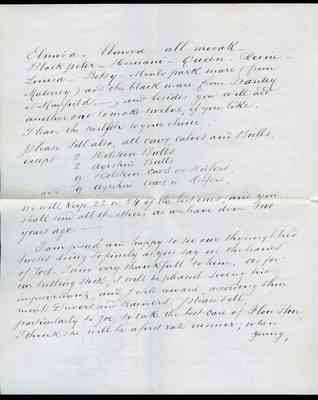 Elmira - Elmira - all morak -
Black peter - Hermani - Queen -
Louisa - Betsy - Menlo park mare (from
Maloney) and the black mare from Stanley
& Mayfield. — and besides you will add
another one to make twelve, if you like.
I leave the twelfth to your choice.
Please sell also, all cows, calves and bulls,
except 2 Holstein Bulls
2 Ayrshire Bulls
9 Holstein Cows or Heifers
and 9 Ayrshire Cows or Heifers.
We will keep 22 or 24 of the best ones, and you
shall send all the others as we have done
years ago. —
I am proud and happy to see our thoroughbred
horses doing so finely as you say in the hands
of Tod. I am very thankful to him. As for
our trotting stock, I will be pleased seeing his
improvement, and I will award, according their
merit, Drivers and trainers. Please tell,
particularly to Joe, to take the best care of
I think she will be a first rate runner; when
young,